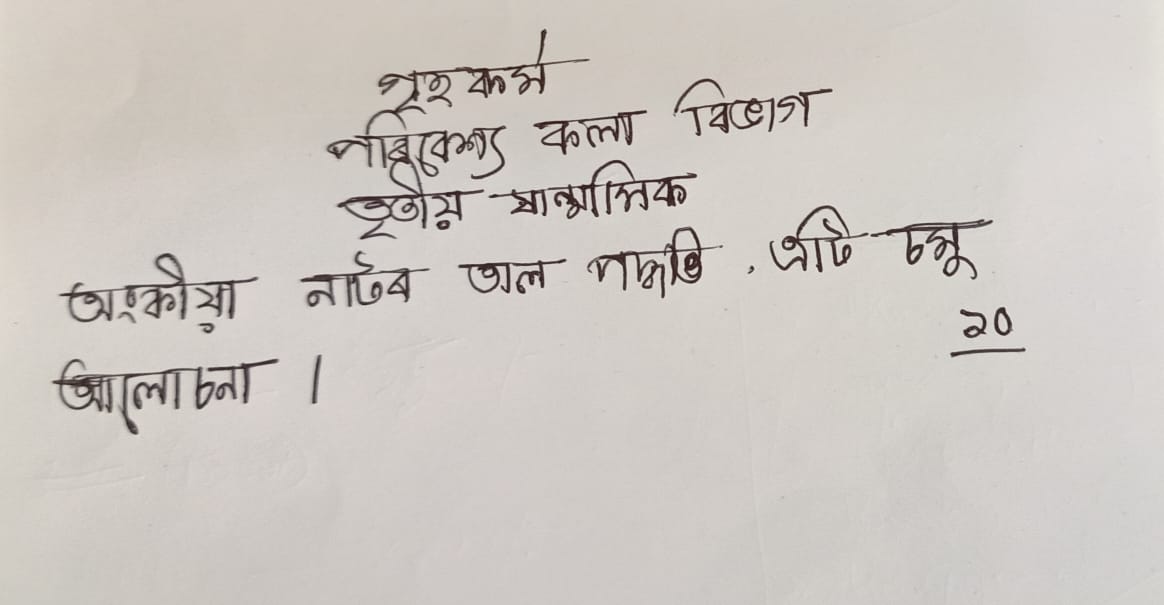 গৃহ কৰ্ম
পৰিৱেশ্য কলা বিভাগ
তৃতীয় ষান্মাসিক
অংকীয়া নাটৰ তাল পদ্ধতি, এটি চমু
২০
আলোচনা ।